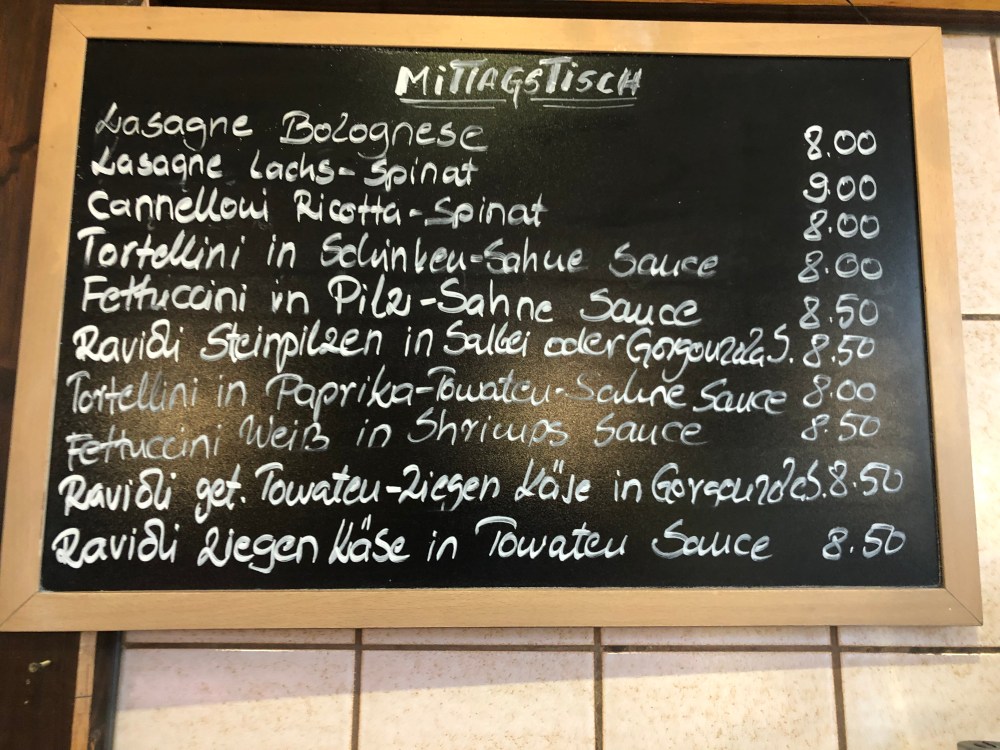 MiTTAGSTiSCH
Lasagne Bolognese 8.00
Lasagne Lachs-Spinat 9.00
Cannelloni Ricotta-Spinat 8.00
Tortellini in Schinken-Sahne Sauce 8.00
Fettuccini in Pilz-Sahne Sauce 8.50
Ravioli Steinpilzen in Salbei oder Gorgonzola S. 8.50
Tortellini in Paprika-Tomaten-Sahne Sauce 8.00
Fettuccini Weiß in Shrimps Sauce 8.50
Ravioli get. Tomaten-Ziegen Käse in Gorgonzola S. 8.50
Ravioli Ziegen Käse in Tomaten Sauce 8.50